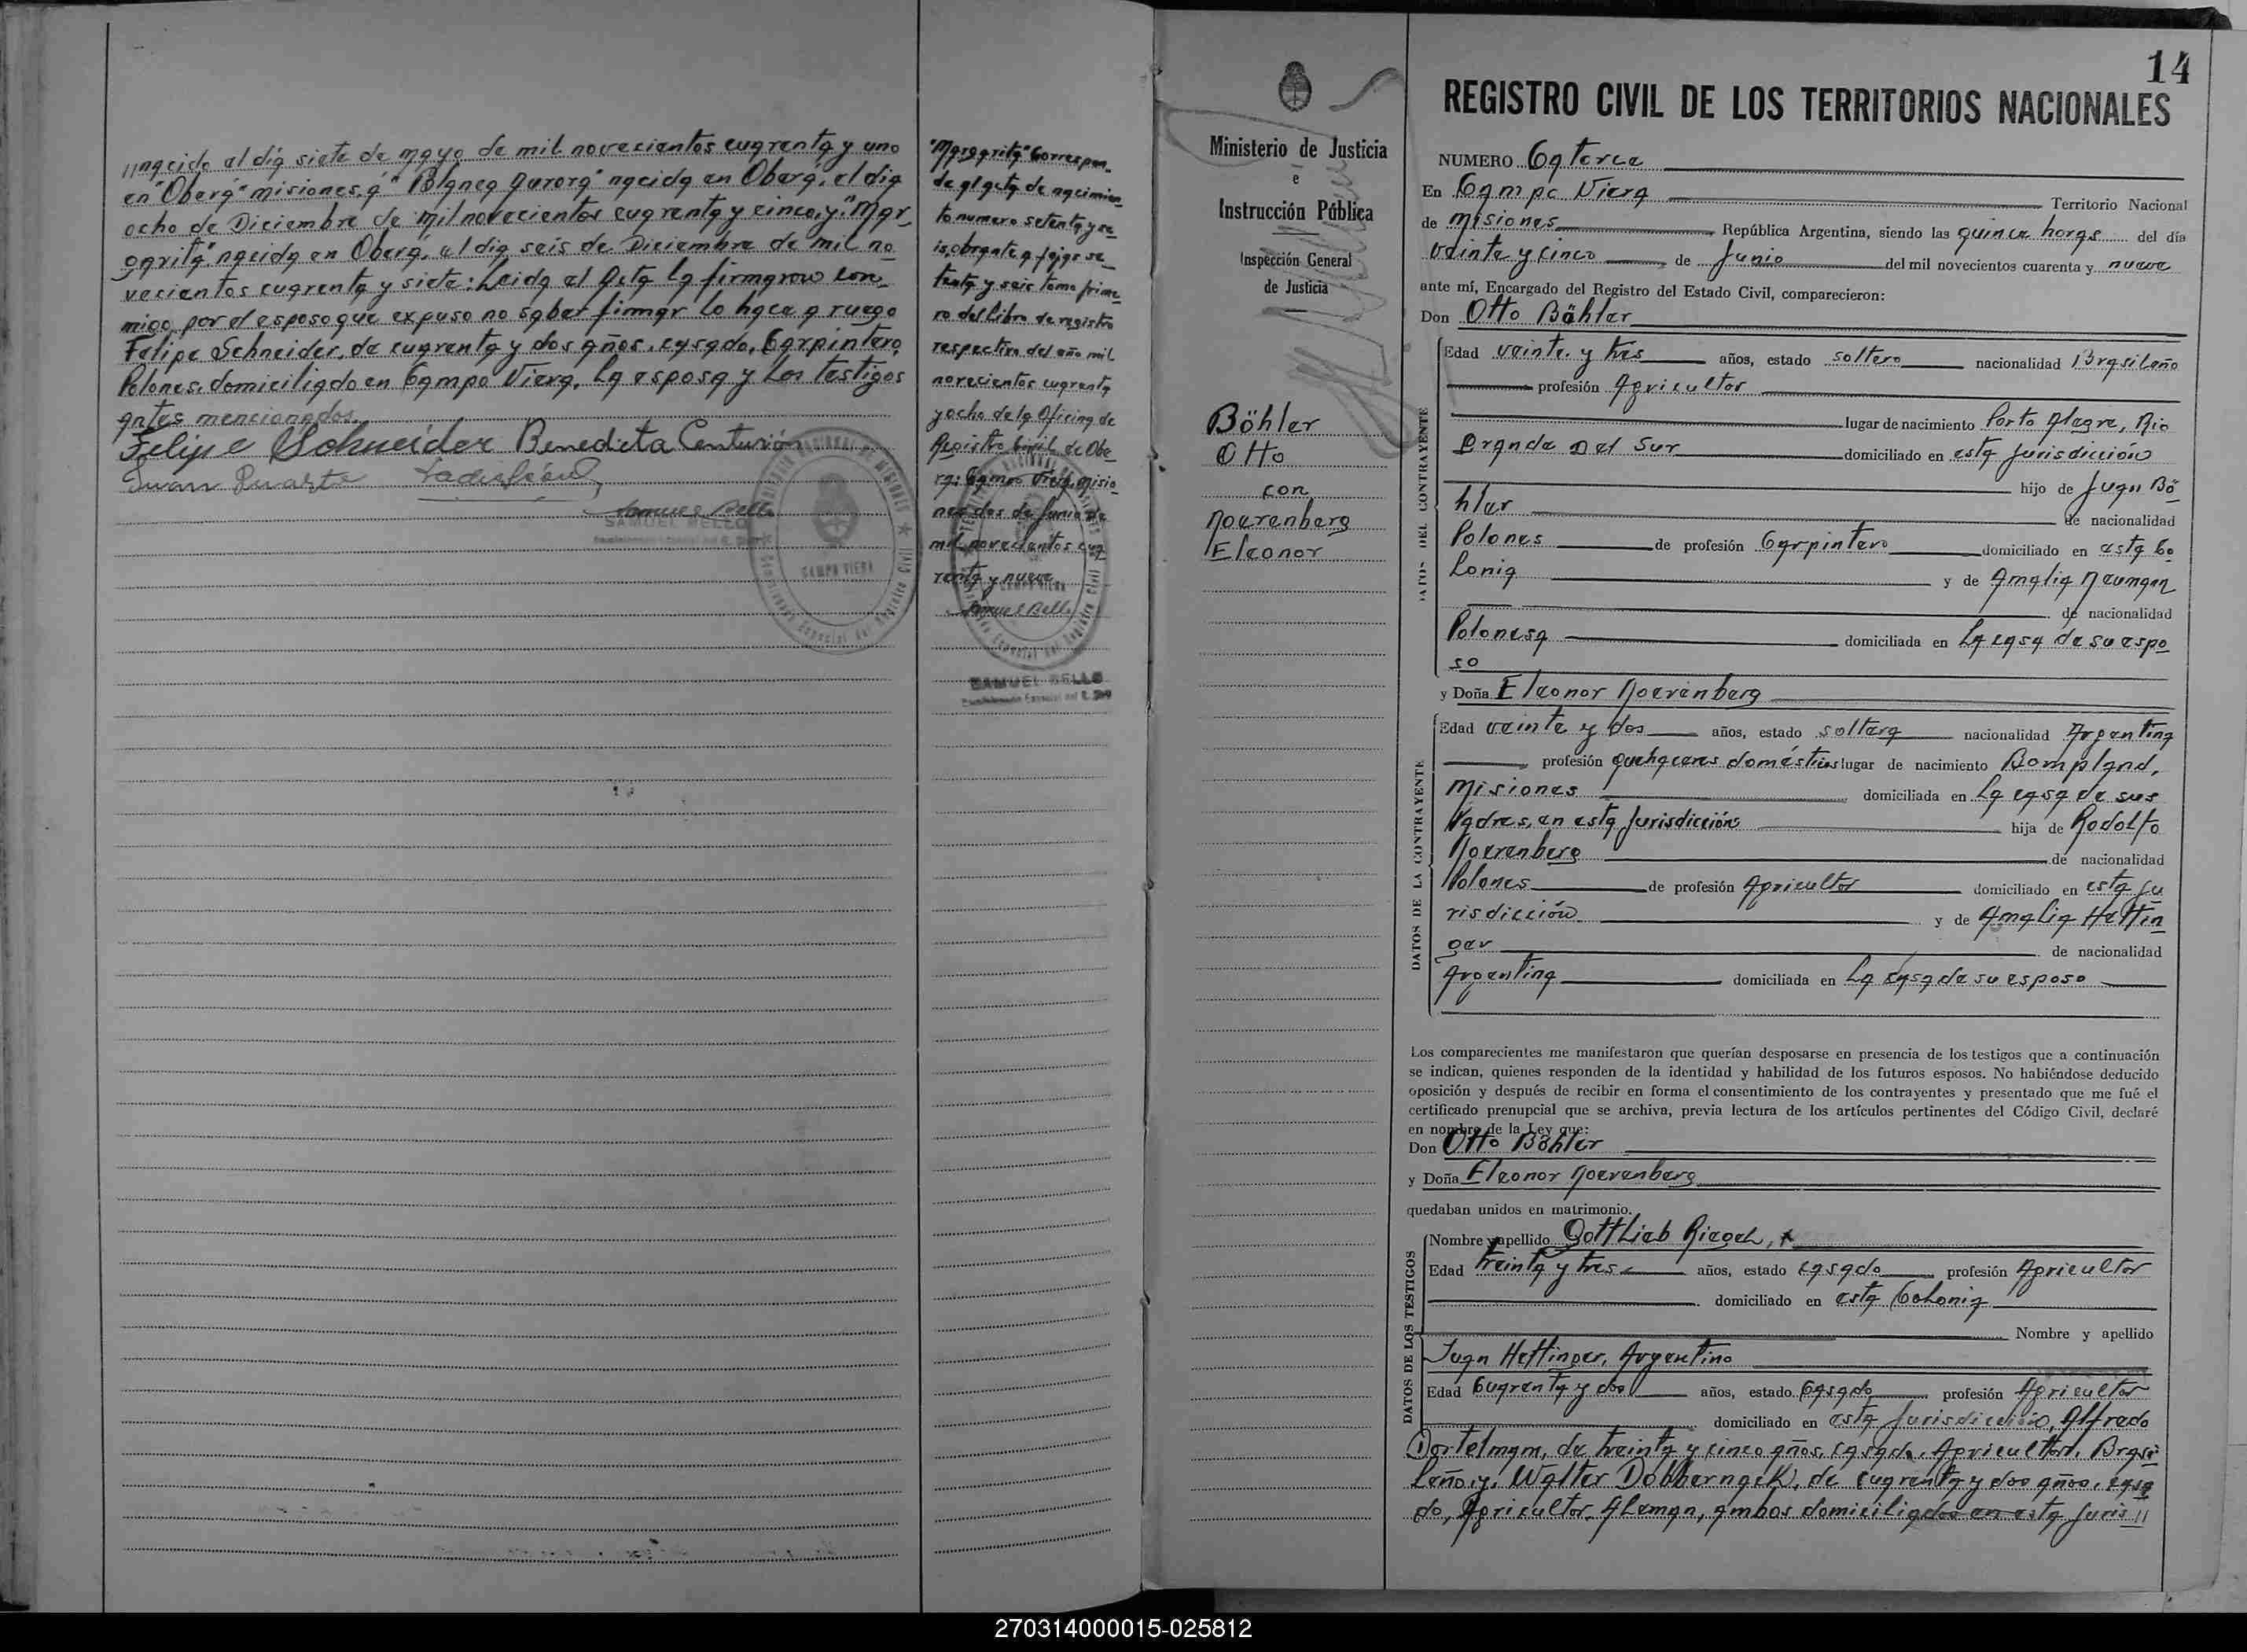 //nacido el día siete de mayo de mil novecientos cuarenta y uno
en "Oberá" misiones, a "Blanca Aurora" nacida en Oberá, el día
ocho de Diciembre de mil novecientos cuarenta y cinco, y "Mar_
garita" nacida en Oberá, el día seis de Diciembre de mil no_
vecientos cuarenta y siete: Leida el Acta la firmaron con_
migo, por el esposo que expuso no saber firmar lo hace a ruego
Felipe Schneider, de cuarenta y dos años, casado, Carpintero,
Polones, domiciliado en Campo Viera, la esposa y los testigos
antes mencionados.
Felipe Schneider Benedicta Centurión
Juan Duarte
Samuel Bello
SAMUEL BELLO
CAMPO VIERA
"Margarita" Correspon_
de al acta de nacimien_
to numero setenta y se_
is, obrante a fojas se_
tenta y seis tomo prime_
ro del libro de registro
respectivo del año mil
novecientos cuarenta
y ocho de la Oficina de
Registro Civil de Obe_
rá: Campo Viera, misio_
nes dos de Junio de
mil novecientos cua_
renta y nueve.
CAMPO VIERA
Samuel Bello
SAMUEL BELLO
Ministerio de Justicia
e
Instrucción Pública
Inspección General
de Justicia
Böhler
Otto
con
Noerenberg
Eleonor
14
REGISTRO CIVIL DE LOS TERRITORIOS NACIONALES
NUMERO Catorce
En Campo Viera Territorio Nacional
de misiones República Argentina, siendo las quince horas del día
veinte y cinco de Junio del mil novecientos cuarenta y nueve
ante mí, Encargado del Registro del Estado Civil, comparecieron:
Don Otto Böhler
DATOS DEL CONTRAYENTE
Edad veinte y tres años, estado soltero nacionalidad Brasileño
profesión Agricultor
lugar de nacimiento Porto Alegre, Rio
Grande Del Sur domiciliado en esta Jurisdicción
hijo de Juan Bö
hler de nacionalidad
Polones de profesión Carpintero domiciliado en esta Co
lonia y de Amalia Neuman
de nacionalidad
Polonesa domiciliada en La casa de su espo
so
y Doña Eleonor Noerenberg
DATOS DE LA CONTRAYENTE
Edad veinte y dos años, estado soltera nacionalidad Argentina
profesión quehaceres domésticos lugar de nacimiento Bompland,
Misiones domiciliada en La casa de sus
Padres, en esta Jurisdicción hija de Rodolfo
Noerenberg de nacionalidad
Polones de profesión Agricultor domiciliado en esta Ju
risdicción y de Amalia Hettin
ger de nacionalidad
Argentina domiciliada en La casa de su esposo
Los comparecientes me manifestaron que querían desposarse en presencia de los testigos que a continuación
se indican, quienes responden de la identidad y habilidad de los futuros esposos. No habiéndose deducido
oposición y después de recibir en forma el consentimiento de los contrayentes y presentado que me fué el
certificado prenupcial que se archiva, previa lectura de los artículos pertinentes del Código Civil, declaré
en nombre de la Ley que:
Don Otto Böhler
y Doña Eleonor Noerenberg
quedaban unidos en matrimonio.
DATOS DE LOS TESTIGOS
Nombre y apellido Gottlieb Riegel,
Edad treinta y tres años, estado casado profesión Agricultor
domiciliado en esta Colonia
Nombre y apellido
Juan Hettinger, Argentino
Edad Cuarenta y dos años, estado Casado profesión Agricultor
domiciliado en esta Jurisdicción, Alfredo
Dortelmam, de treinta y cinco años, casado, Agricultor, Brasi
leño, y, Walter Dobbernack, de cuarenta y dos años, casa
do, Agricultor, Aleman, ambos domiciliados en esta Juris//
270314000015-025812